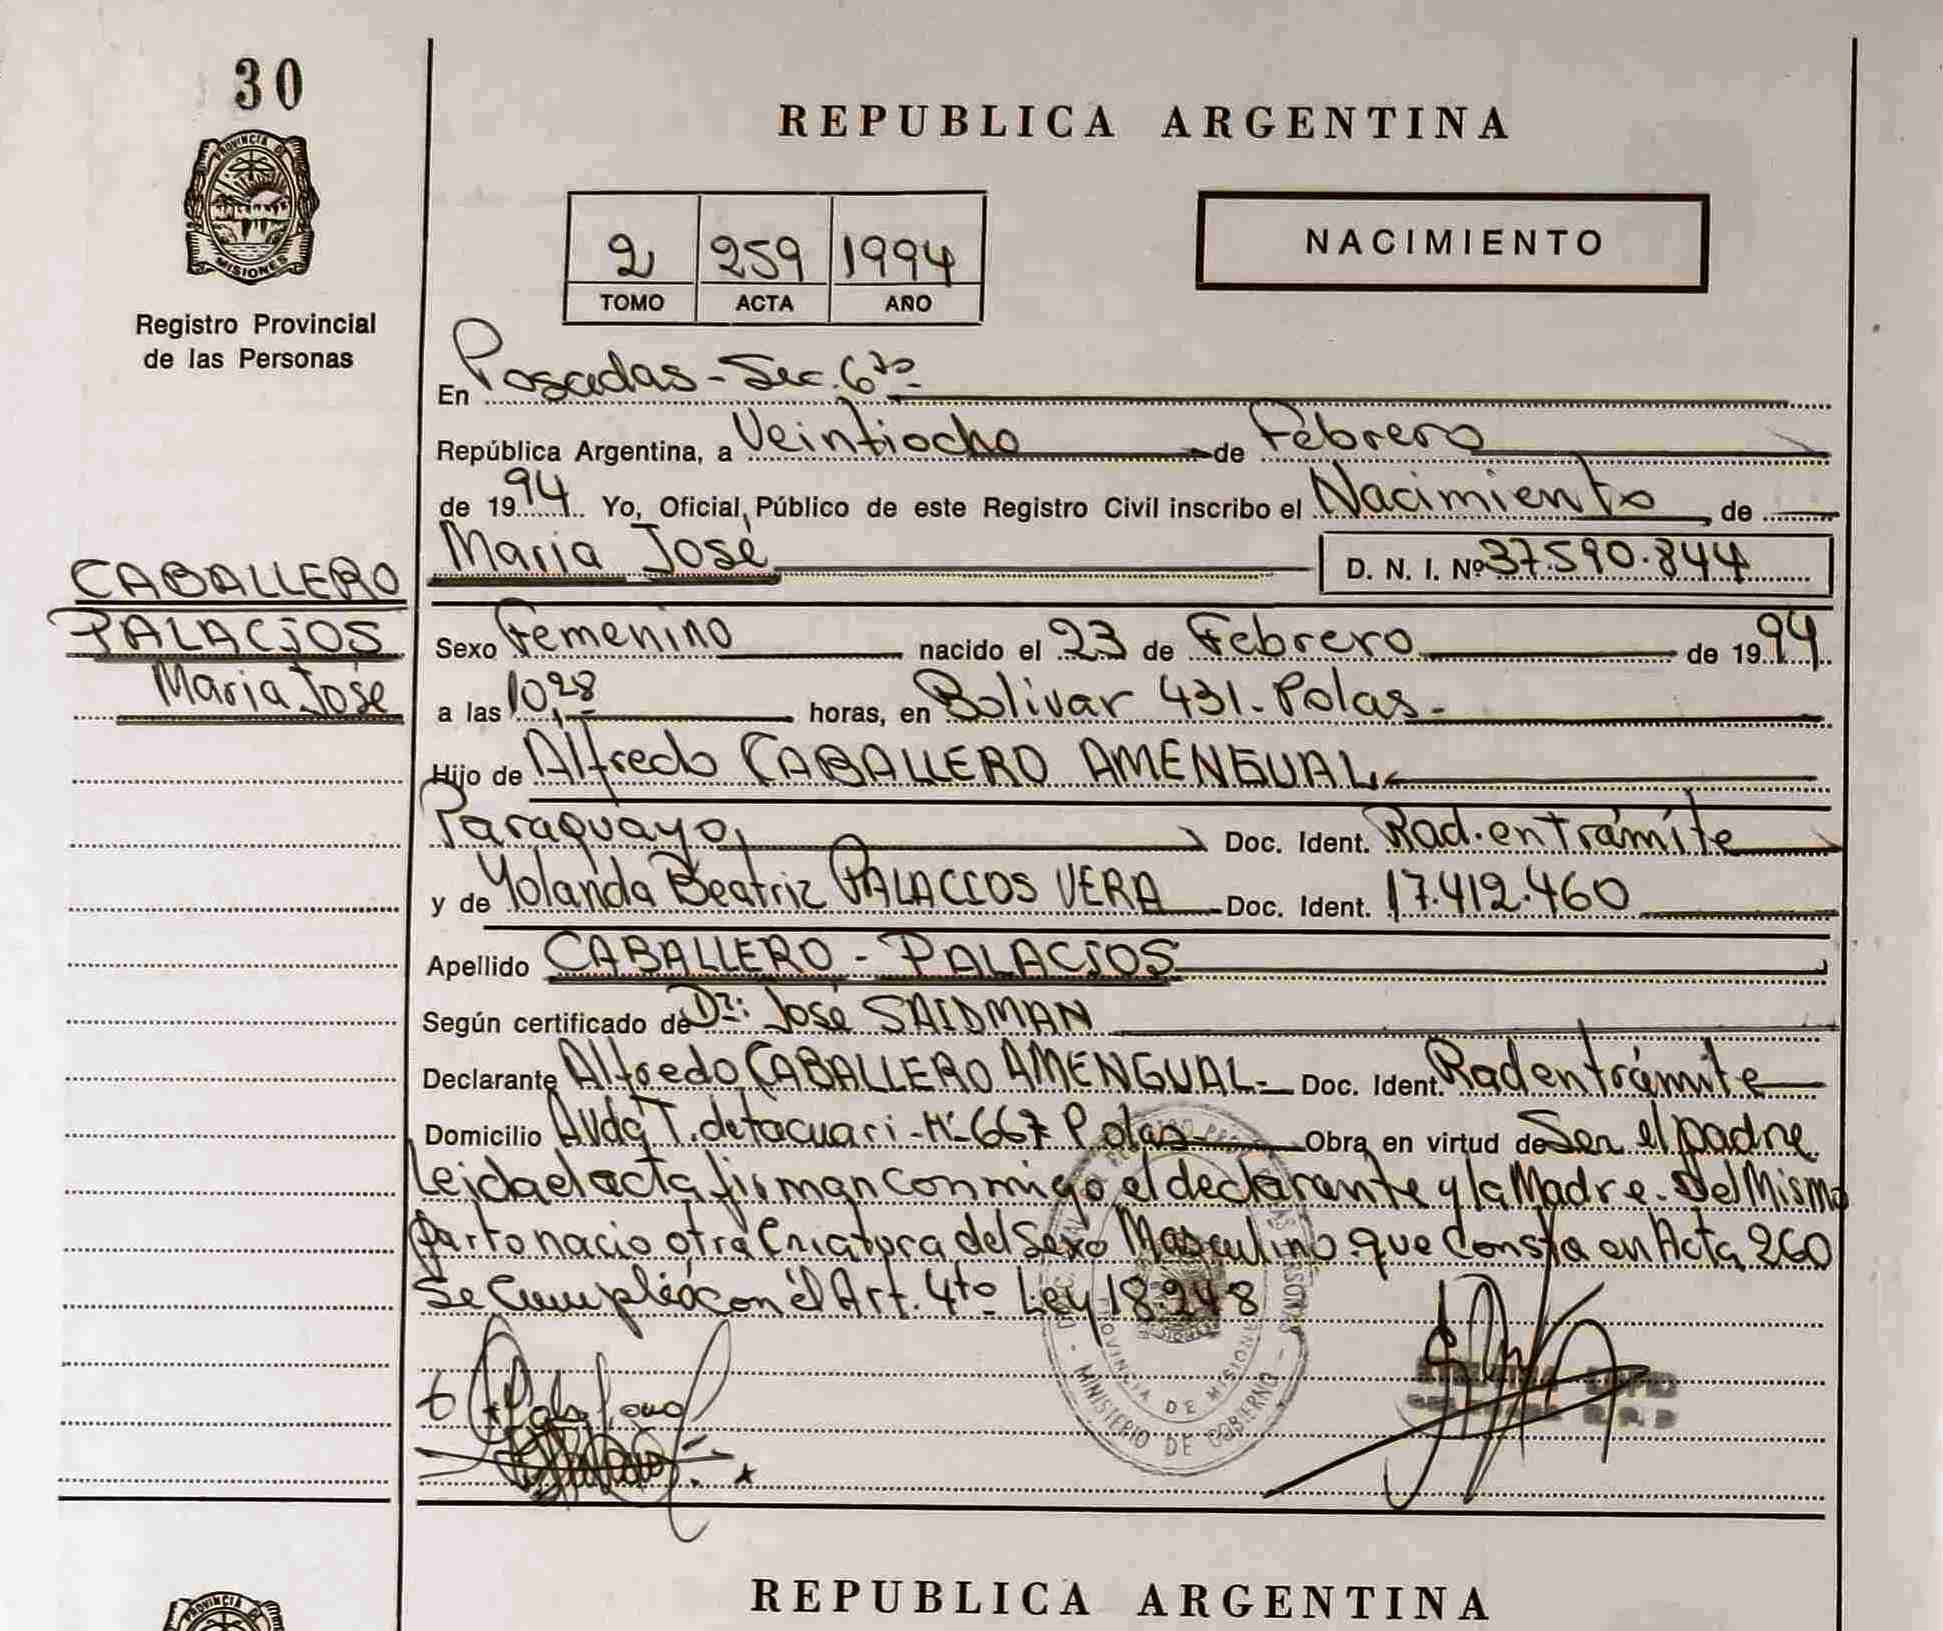 30
PROVINCIA DE
MISIONES
Registro Provincial
de las Personas
CABALLERO
PALACIOS
Maria José
REPUBLICA ARGENTINA
2 259 1994
TOMO ACTA AÑO
NACIMIENTO
En Posadas - Sec. 6ta -
República Argentina, a Veintiocho de Febrero
de 1994 Yo, Oficial Público de este Registro Civil inscribo el Nacimiento, de
Maria José D. N. I. Nº 37.590.844
Sexo Femenino nacido el 23 de Febrero de 1994
a las 10,28 horas, en Bolivar 431. Pdas -
Hijo de Alfredo CABALLERO AMENGUAL -
Paraguayo, Doc. Ident. Rad. en trámite
y de Yolanda Beatriz PALACIOS VERA Doc. Ident. 17.412.460
Apellido CABALLERO - PALACIOS
Según certificado de Dr: José SAIDMAN
Declarante Alfredo CABALLERO AMENGUAL - Doc. Ident. Rad en trámite
Domicilio Avda T. de tacuari - Nº 667 Pdas - Obra en virtud de Ser el padre
Leida el acta firman conmigo el declarante y la Madre. Del Mismo
parto nacio otra Criatura del Sexo Masculino que Consta en Acta 260
Se Cumplió con el Art. 4to Ley 18.248
PROVINCIA DE MISIONES
MINISTERIO DE GOBIERNO
REPUBLICA ARGENTINA
PROVINCIA DE